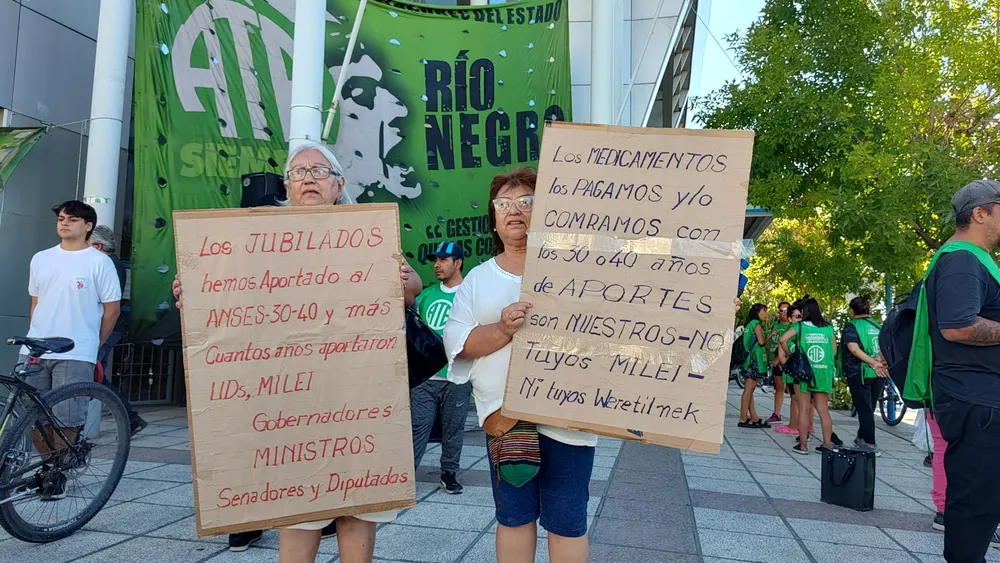 DEL ESTADO
ATE
RÍO
NEGRO
Los JUBILADOS
hemos Aportado al
ANSES-30-40 y más
Cuantos años aportaron
UDs, MILEI
Gobernadores
MINISTROS
Senadores y Diputados
Los MEDICAMENTOS
los PAGAMOS y/o
COMRAMOS con
los 30 o 40 años
de APORTES
son NUESTROS-NO
Tuyos MILEI-
Ni tuyos Weretilnek
ATE